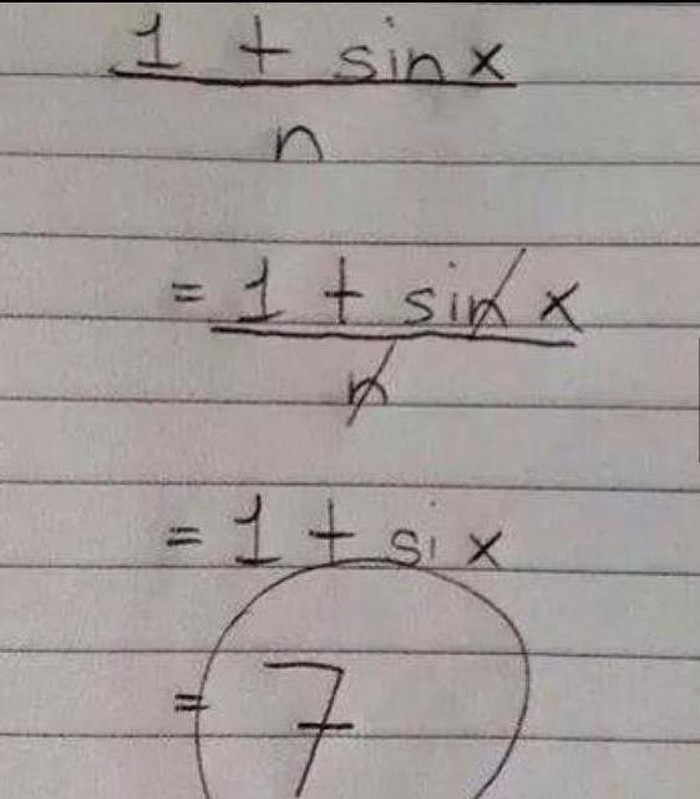 1 + sin x
n
= 1 + sin x
n
= 1 + si x
= 7